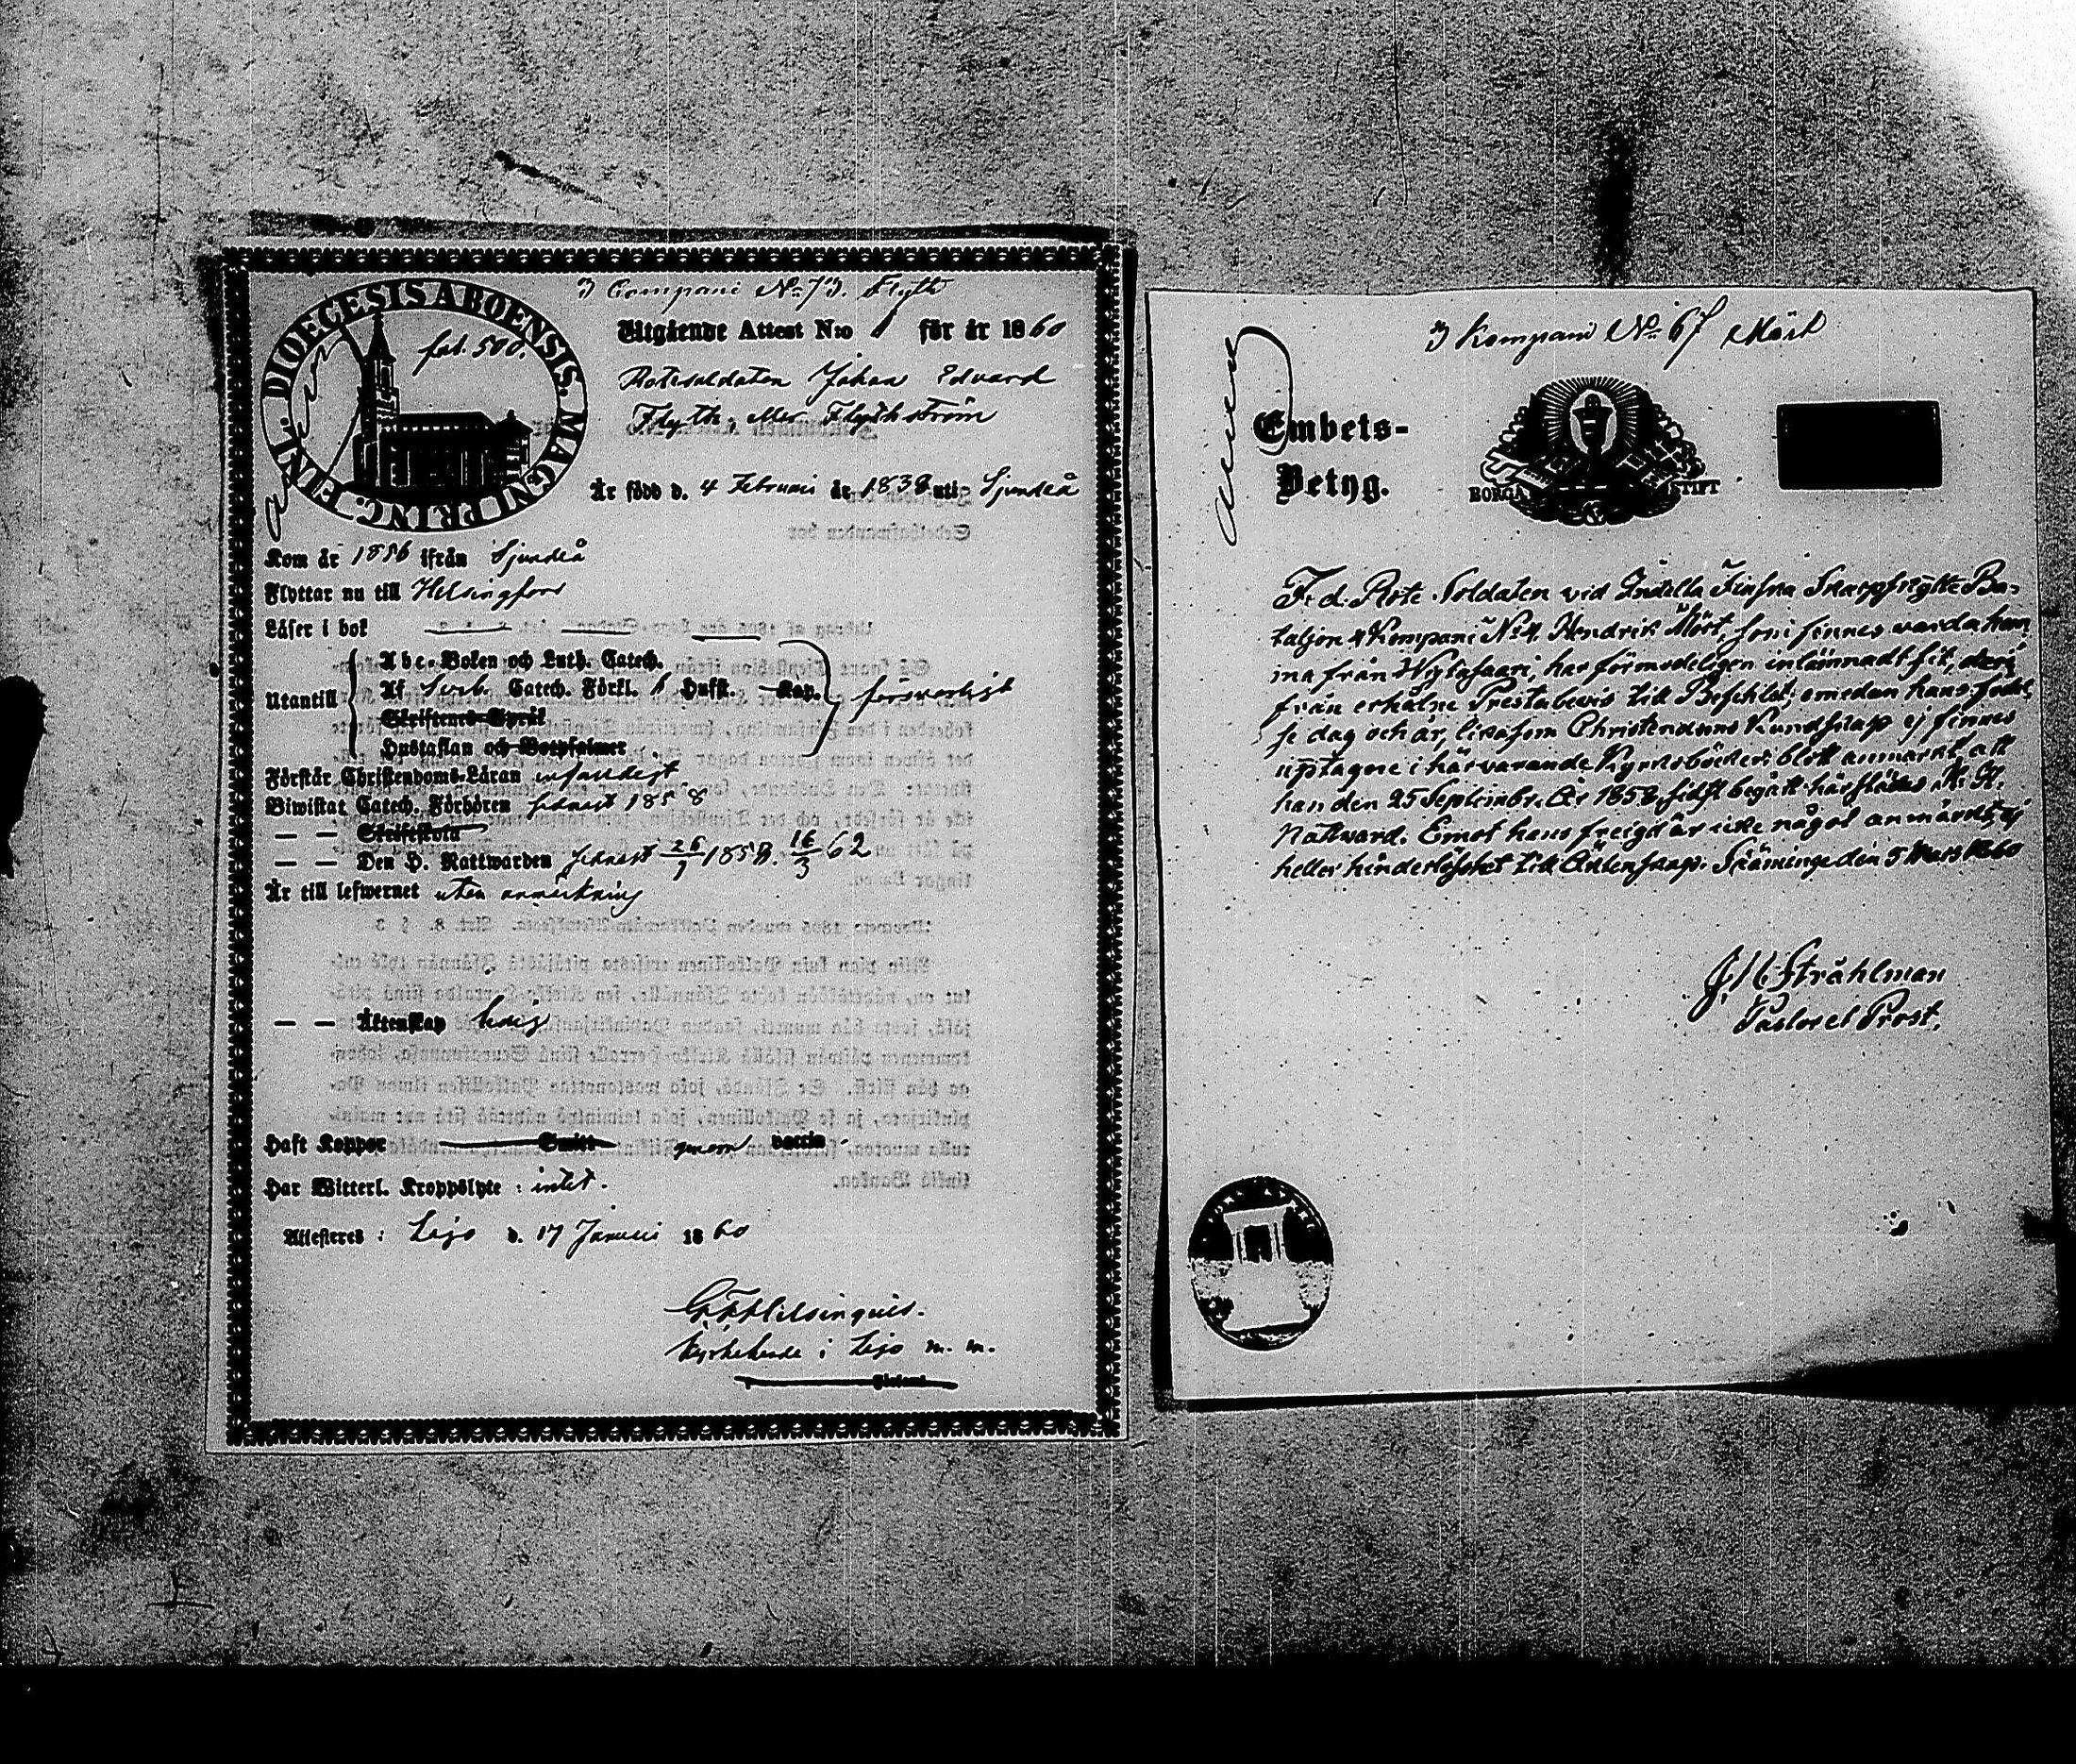 3 Compani No 73. Flyth
DIOECESIS ABOENSIS. MAGNI PRINC. FINL.
fol. 500.
Utgående Attest N:o 1 för år 1860
Rotesoldaten Johan Edvard
Flyth, eller Flythström
Är född d. 4 Februari år 1838 uti Sjundeå
Kom år 1856 ifrån Sjundeå
Flyttar nu till Helsingfors
Läser i bok
Utantill
Abc-Boken och Luth. Catech.
Af Sveb. Catech. Förkl. 6 Hufst. Kap.
försvarligt
Skriftenes Språk
Hustaflan och Botpsalmer
Förstår Christendoms-Läran enfaldigt
Biwistat Catech. Förhören senast 1858
— — Skriftskola
— — Den H. Nattwarden senast 26/9 1858. 16/3 62
Är till lefwernet utan anmärkning
— — Äktenskap ledig
Haft Koppor Smitt genom vaccin
Har Witterl. Kroppslyte: intet.
Attesteres: Lojo d. 17 Januari 1860
Kyrkoherde i Lojo m. m.
3 Kompani No 67 Mört
Embets-
Betyg.
BORGÅ STIFT
F. d. Rote-Soldaten vid Indelta Finska Skarpskytte Ba-
taljon 4 Kompani No 4. Hendrik Mört, som finnes vara kom
ma från Wytasaari, har förmodeligen inlämnadt sit, derí
från erhålne Prestabevis till Befehlet; emedan hans födel
se dag och år, likasom Christendoms Kundskap ej finnes
uptagne i härvarande Kyrkoböcker: blott anmärkt att
han den 25 September År 1858 sidst begått härstädes H. H.
Nattward. Emot hans frejd är icke något anmärkt, ej
heller hinderlöshet till Äktenskap. Skäminge den 5 Mars 1860
Stråhlman
Pastor et Prost.